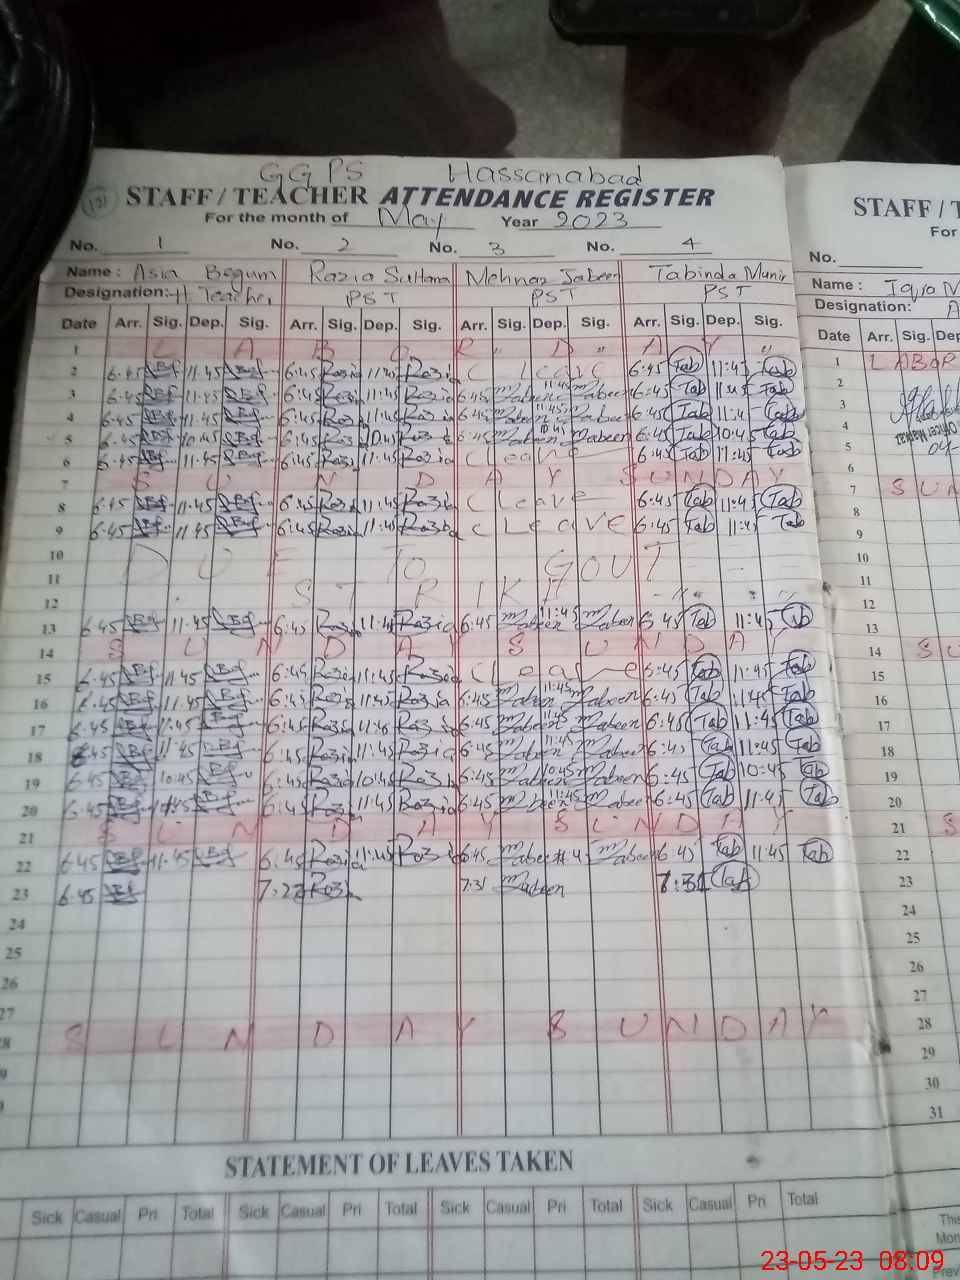 GGPS Hassanabad
121 STAFF / TEACHER ATTENDANCE REGISTER STAFF / T
For the month of May Year 2023 For
No. 1 No. 2 No. 3 No. 4 No.
Name : Asia Begum Razia Sultana Mehnaz Jabeen Tabinda Munir Name :
Designation: H Teacher PST PST PST Designation: A
Date Arr. Sig. Dep. Sig. Arr. Sig. Dep. Sig. Arr. Sig. Dep. Sig. Arr. Sig. Dep. Sig. Date Arr. Sig. Dep
1 LABOR DAY 1 LABOR
2 6:45 11:45 6:45 Razia 11:45 Razia C Leave 6:45 Tab 11:45 Tab 2
3 6:45 11:45 6:45 Razia 11:45 Razia 6:45 Jabeen 11:45 Jabeen 6:45 Tab 11:45 Tab 3
4 6:45 11:45 6:45 Razia 11:45 Razia 6:45 Jabeen 11:45 Jabeen 6:45 Tab 11:4 Tab 4
5 6:45 10:45 6:45 Razia 10:45 Razia 6:45 Jabeen 10:45 Jabeen 6:45 Tab 10:45 Tab 5
6 6:45 11:45 6:45 Razia 11:45 Razia C Leave 6:45 Tab 11:45 Tab 6
7 SUNDAY SUNDAY 7 SUN
8 6:45 11:45 6:45 Razia 11:45 Razia C Leave 6:45 Tab 11:45 Tab 8
9 6:45 11:45 6:45 Razia 11:45 Razia C Leave 6:45 Tab 11:45 Tab 9
10 DUE TO GOUT 10
11 STRIKE 11
12 12
13 6:45 11:45 6:45 Razia 11:45 Razia 6:45 Jabeen 11:45 Jabeen 6:45 Tab 11:45 Tab 13
14 SUNDAY SUNDAY 14 SU
15 6:45 11:45 6:45 Razia 11:45 Razia C Leave 6:45 Tab 11:45 Tab 15
16 6:45 11:45 6:45 Razia 11:45 Razia 6:45 Jabeen 11:45 Jabeen 6:45 Tab 11:45 Tab 16
17 6:45 11:45 6:45 Razia 11:45 Razia 6:45 Jabeen 11:45 Jabeen 6:45 Tab 11:45 Tab 17
18 6:45 11:45 6:45 Razia 11:45 Razia 6:45 Jabeen 11:45 Jabeen 6:45 Tab 11:45 Tab 18
19 6:45 10:45 6:45 Razia 10:45 Razia 6:45 Jabeen 10:45 Jabeen 6:45 Tab 10:45 Tab 19
20 6:45 11:45 6:45 Razia 11:45 Razia 6:45 Jabeen 11:45 Jabeen 6:45 Tab 11:45 Tab 20
21 SUNDAY SUNDAY 21 S
22 6:45 11:45 6:45 Razia 11:45 Razia 6:45 Jabeen Jabeen 6:45 Tab 11:45 Tab 22
23 6:45 Razia 7:31 Jabeen 7:31 Tab 23
24 24
25 25
26 26
27 27
28 SUNDAY SUNDAY 28
29
30
31
STATEMENT OF LEAVES TAKEN
Sick Casual Pri Total Sick Casual Pri Total Sick Casual Pri Total Sick Casual Pri Total
23-05-23 08:09